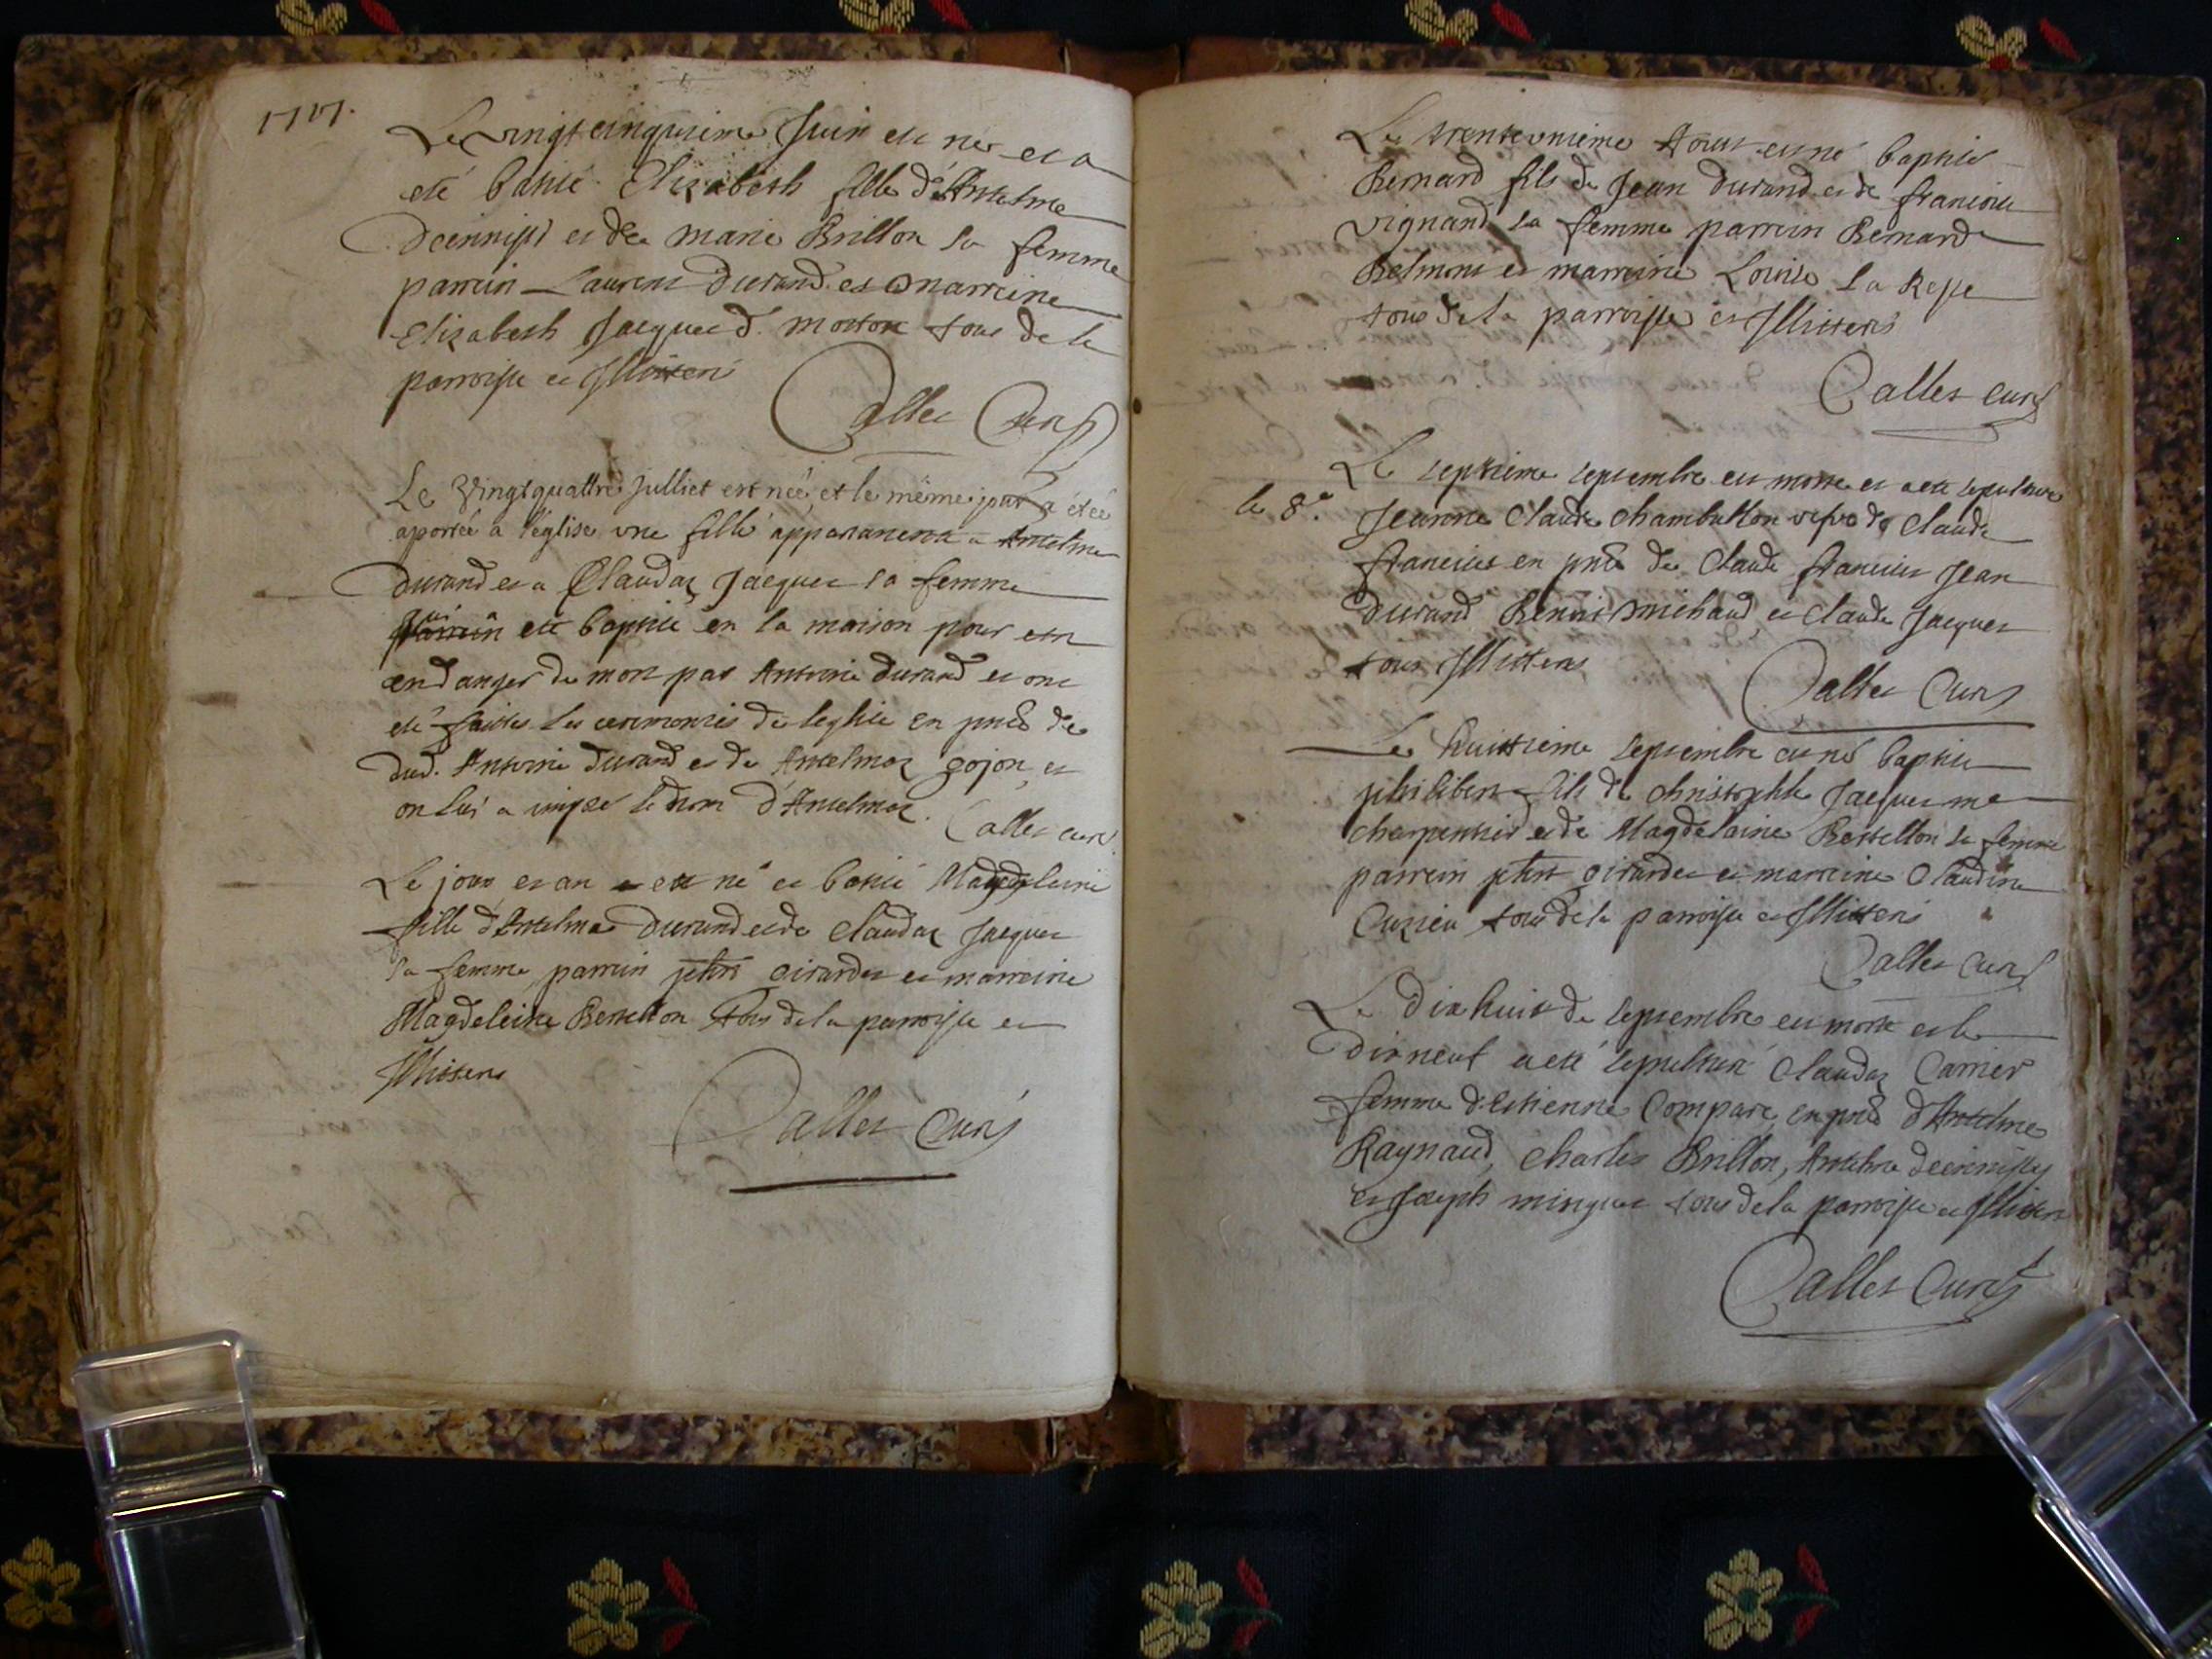 1717.
Le vingtcinquieme Juin est née et a
eté batisé Elizabeth fille d'Antelme
et de Marie Brillon sa femme
parrein Laurent Durand et marreine
Elizabeth Jacques d. tous de la
parroisse et Illitterés
Callet Curé
Le Vingtquattre Julliet est neé, et le même jour a été
aportée a l'église une fille appartenente a Antelme
Durand et a Claudaz Jacques sa femme
qui a eté baptisé en la maison pour etre
en danger de mort par Antoine Durand et ont
eté faittes les ceremonies de leglise en pnce de
dud. Antoine Durand et de Antelmaz gojon et
on lui a impose le nom d'Antelmaz.
Callet curé
Le jour et an a eté né et batisé Magdeleine
fille d'Antelme Durand et de Claudaz Jacques
sa femme, parrein girardet et marreine
Magdeleine Bertellon tous de la parroisse et
Illitteres
Callet Curé
Le trenteunieme Aoust est né baptisé
Bernard fils de Jean Durand et de francoise
vignand sa femme parrein Bernard
Belmont et marreine Louise la
tous de la parroisse et Illitterés
Callet curé
Le septieme septembre est morte et a eté sepulturé
le 8e. Jeanne Claude Chambutton vefve de Claude
francius en pnce de Claude francius Jean
Durand Benoit michaud et Claude Jacques
tous Illitteres
Callet Curé
Le huittieme septembre est né baptisé
philibert fils de christophle Jacques me
charpentier et de Magdelaine Bertellon sa femme
parrein girardet et marreine Claudine
Cuzieu tous de la parroisse et Illitterés
Callet Curé
Le dixhuit de septembre est morte et le
dixneuf a eté sepulturé Claudaz Carrier
femme d'Estienne Compare, en pnce d'Antelme
Raynaud, Charles Brillon, Antelme
et Joseph minguet tous de la parroisse et Illitteres
Callet Curé